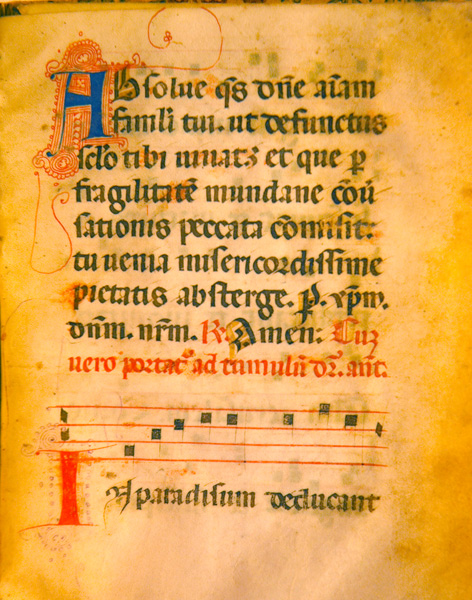 Absolue q̄s dn̄e aīam
famłi tui. ut defunctus
sclo tibi uiuatꝫ et que p̱
fragilitatē mundane cōu̅
sationis peccata cōmisit:
tu uenia misericordissime
pietatis absterge. P̱. xp̄m.
dn̄m. nr̄m. R. Amen: Cuꝫ
uero portat᷒ ad tumulū dr̄. an̄t.
In paradisum deducant